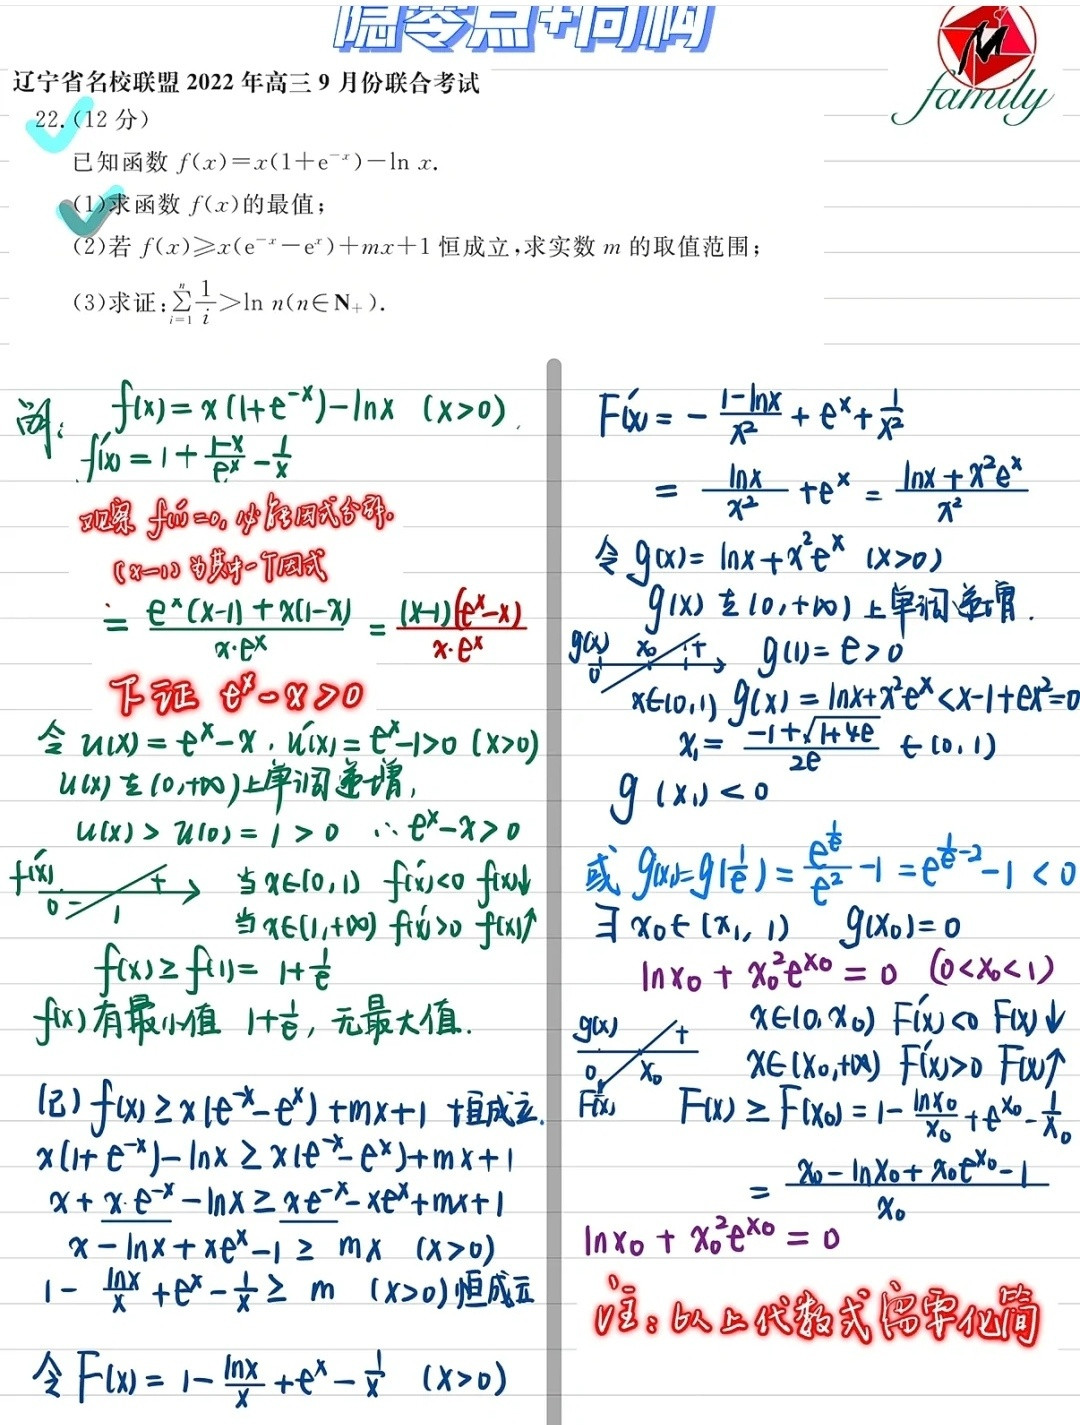 隐零点+同构
M
family
辽宁省名校联盟 2022 年高三 9 月份联合考试
22.(12 分)
已知函数 f(x)=x(1+e⁻ˣ)-ln x.
(1)求函数 f(x)的最值;
(2)若 f(x)≥x(e⁻ˣ-eˣ)+mx+1 恒成立,求实数 m 的取值范围;
(3)求证:∑_{i=1}^{n} 1/i>ln n(n∈N₊).
f(x)=x(1+e⁻ˣ)-lnx (x>0).
f'(x)=1+(1-x)/eˣ-1/x
观察 f'(1)=0, 必能因式分解.
(x-1) 为其中一个因式
= (eˣ(x-1)+x(1-x))/(x·eˣ) = (x-1)(eˣ-x)/(x·eˣ)
下证 eˣ-x>0
令 u(x)=eˣ-x, u'(x)=eˣ-1>0 (x>0)
u(x)在(0,+∞)上单调递增,
u(x)>u(0)=1>0 ∴eˣ-x>0
f'(x) 0 - 1 +
当x∈(0,1) f'(x)<0 f(x)↓
当x∈(1,+∞) f'(x)>0 f(x)↑
f(x)≥f(1)=1+1/e
f(x)有最小值 1+1/e, 无最大值.
(2) f(x)≥x(e⁻ˣ-eˣ)+mx+1 恒成立.
x(1+e⁻ˣ)-lnx≥x(e⁻ˣ-eˣ)+mx+1
x+x·e⁻ˣ-lnx≥xe⁻ˣ-xeˣ+mx+1
x-lnx+xeˣ-1≥mx (x>0)
1-lnx/x+eˣ-1/x≥m (x>0)恒成立
令 F(x)=1-lnx/x+eˣ-1/x (x>0)
F'(x)=-(1-lnx)/x²+eˣ+1/x²
= lnx/x²+eˣ=(lnx+x²eˣ)/x²
令 g(x)=lnx+x²eˣ (x>0)
g(x)在(0,+∞)上单调递增.
g(x) 0 - x₀ 1 +
g(1)=e>0
x∈(0,1) g(x)=lnx+x²eˣ<x-1+ex²=0
x₁=(-1+√(1+4e))/2e ∈(0,1)
g(x₁)<0
或 g(x₁)=g(1/e)=e^(1/e)/e²-1=e^(1/e-2)-1<0
∃x₀∈(x₁,1) g(x₀)=0
lnx₀+x₀²e^(x₀)=0 (0<x₀<1)
g(x) 0 - x₀ +
F'(x)
x∈(0,x₀) F'(x)<0 F(x)↓
x∈(x₀,+∞) F'(x)>0 F(x)↑
F(x)≥F(x₀)=1-lnx₀/x₀+e^(x₀)-1/x₀
= (x₀-lnx₀+x₀e^(x₀)-1)/x₀
lnx₀+x₀²e^(x₀)=0
注:以上代数式需要化简